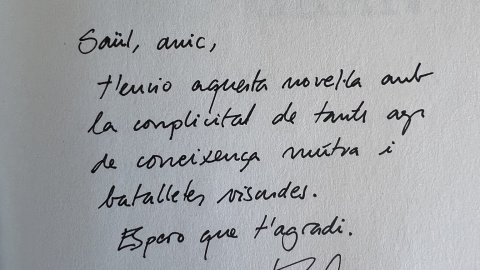 Saül, amic,
t'envio aquesta novel·la amb
la complicitat de tants anys
de coneixença mútua i
batalletes viscudes.
Espero que t'agradi.